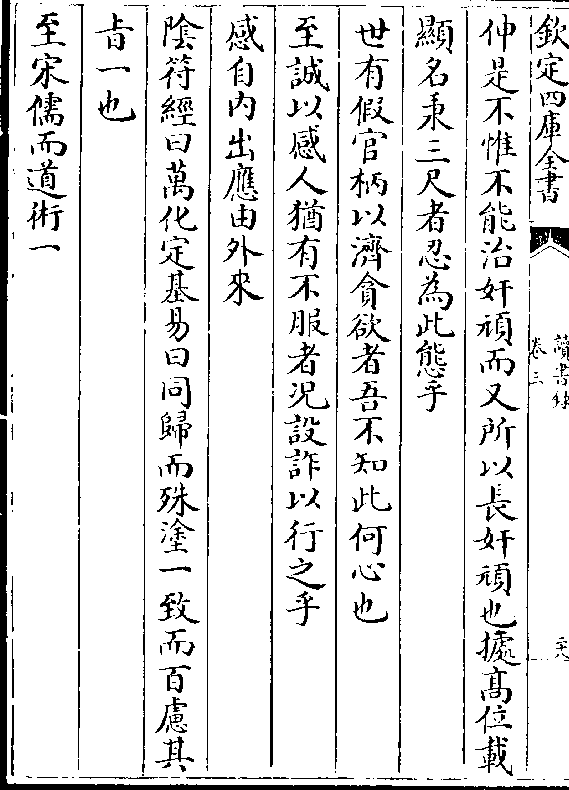 欽定四庫全書
讀書錄
卷三
仲是不惟不能治奸頑而又所以長奸頑也㨿髙位載
顯名秉三尺者忍為此態乎
世有假官柄以濟貪欲者吾不知此何心也
至誠以感人猶有不服者况設詐以行之乎
感自内出應由外來
陰符經曰萬化定基易曰同歸而殊塗一致而百慮其
㫖一也
至宋儒而道術一